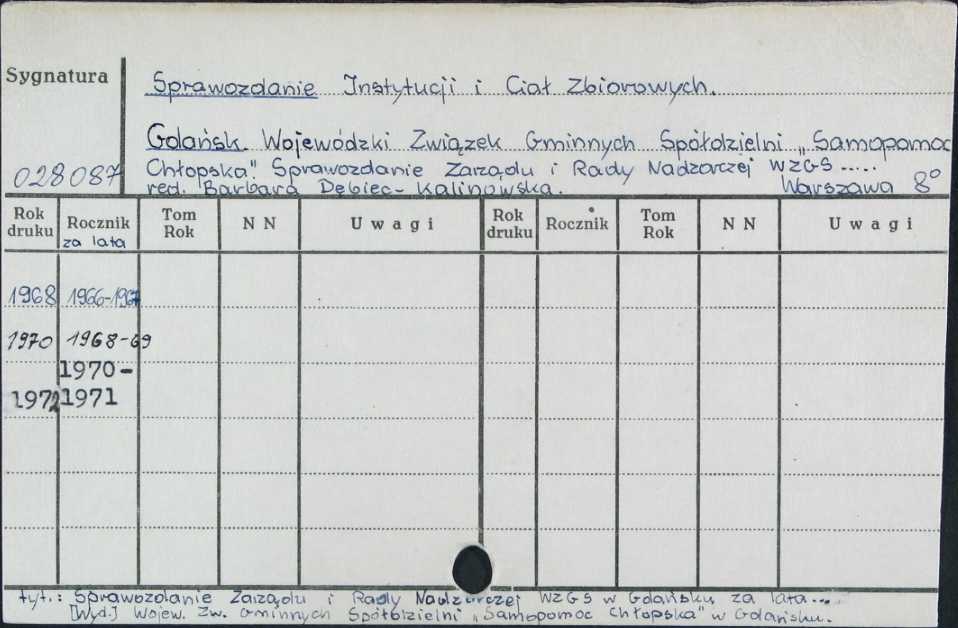 Sygnatura
Sprawozdanie Instytucji i Ciał Zbiorowych.
Gdańsk. Wojewódzki Związek Gminnych Spółdzielni „Samopomoc
028087 Chłopska". Sprawozdanie Zarządu i Rady Nadzorczej WZGS .....
red. Barbara Dębiec-Kalinowska. Warszawa 8°
Rok druku Rocznik za lata Tom Rok NN Uwagi Rok druku Rocznik Tom Rok NN Uwagi
1968 1966-1967
1970 1968-69
1970-
1972 1971
tyt.: Sprawozdanie Zarządu i Rady Nadzorczej WZGS w Gdańsku za lata...
[Wyd.] Wojew. Zw. Gminnych Spółdzielni „Samopomoc Chłopska" w Gdańsku.